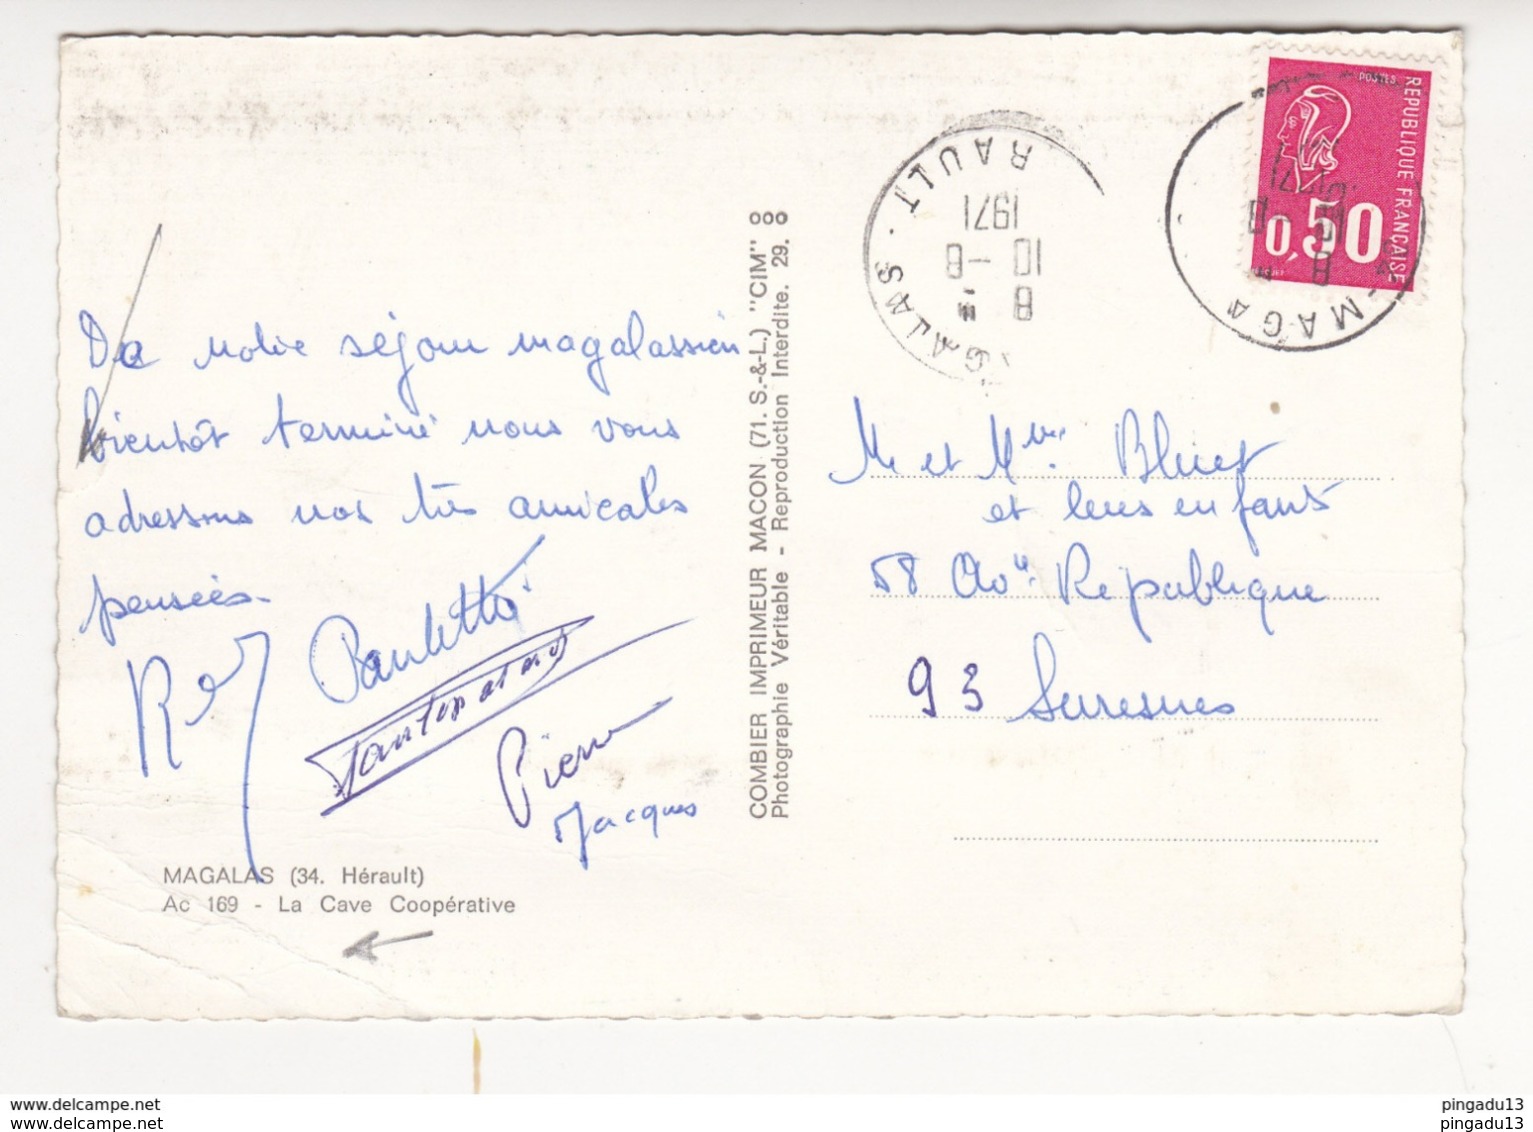 De notre séjour magalassien
bientôt terminé nous vous
adressons nos très amicales
pensées.
Paulette
Pierre
Jacques
MAGALAS (34. Hérault)
Ac 169 - La Cave Coopérative
COMBIER IMPRIMEUR MACON (71. S.-&-L.) "CIM"
Photographie Véritable - Reproduction Interdite. 29.
GALAS . RAULT
8 H
10 -8
1971
POSTES
REPUBLIQUE FRANÇAISE
0,50
-MAGA
M et Mme Bluet
et leurs enfants
58 Ave République
93 Suresnes
www.delcampe.net
www.delcampe.net
pingadu13
pingadu13